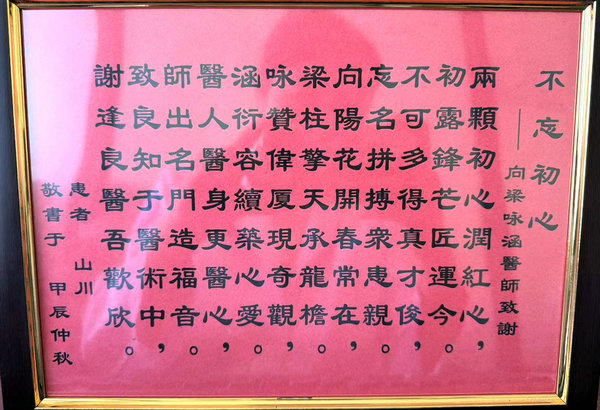 不忘初心
——向梁咏涵醫師致謝
兩顆初心潤紅心，
初露鋒芒匠運今。
不可多得真才俊，
忘名拼搏衆患親。
向陽花開春常在，
梁柱擎天承龍檐。
咏贊偉厦現奇觀，
涵衍容續藥心愛。
醫人醫身更醫心，
師出名門造福音。
致良知于醫術中，
謝逢良醫吾歡欣。
患者 山川
敬書于 甲辰仲秋